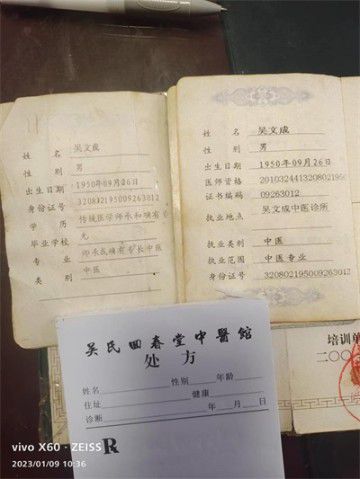 姓 名 吴文成
性 别 男
出生日期 1950年09月26日
身份证号 320821950092630​12
学 历 传统医学师承和确有
毕业学校 无
专 业 师承或确有专长中医
类 别 中医
姓 名 吴文成
性 别 男
出生日期 1950年09月26日
医师资格 2010324413208219​50
证书编码 09263012
执业地点 吴文成中医诊所
执业类别 中医
执业范围 中医专业
身份证号 320821950092630​12
吴氏回春堂中醫館
处 方
姓名 性别 年龄
住址 健康
诊断 年 月 日
R
培训单
二〇〇
vivo X60 · ZEISS
2023/01/09 10:36